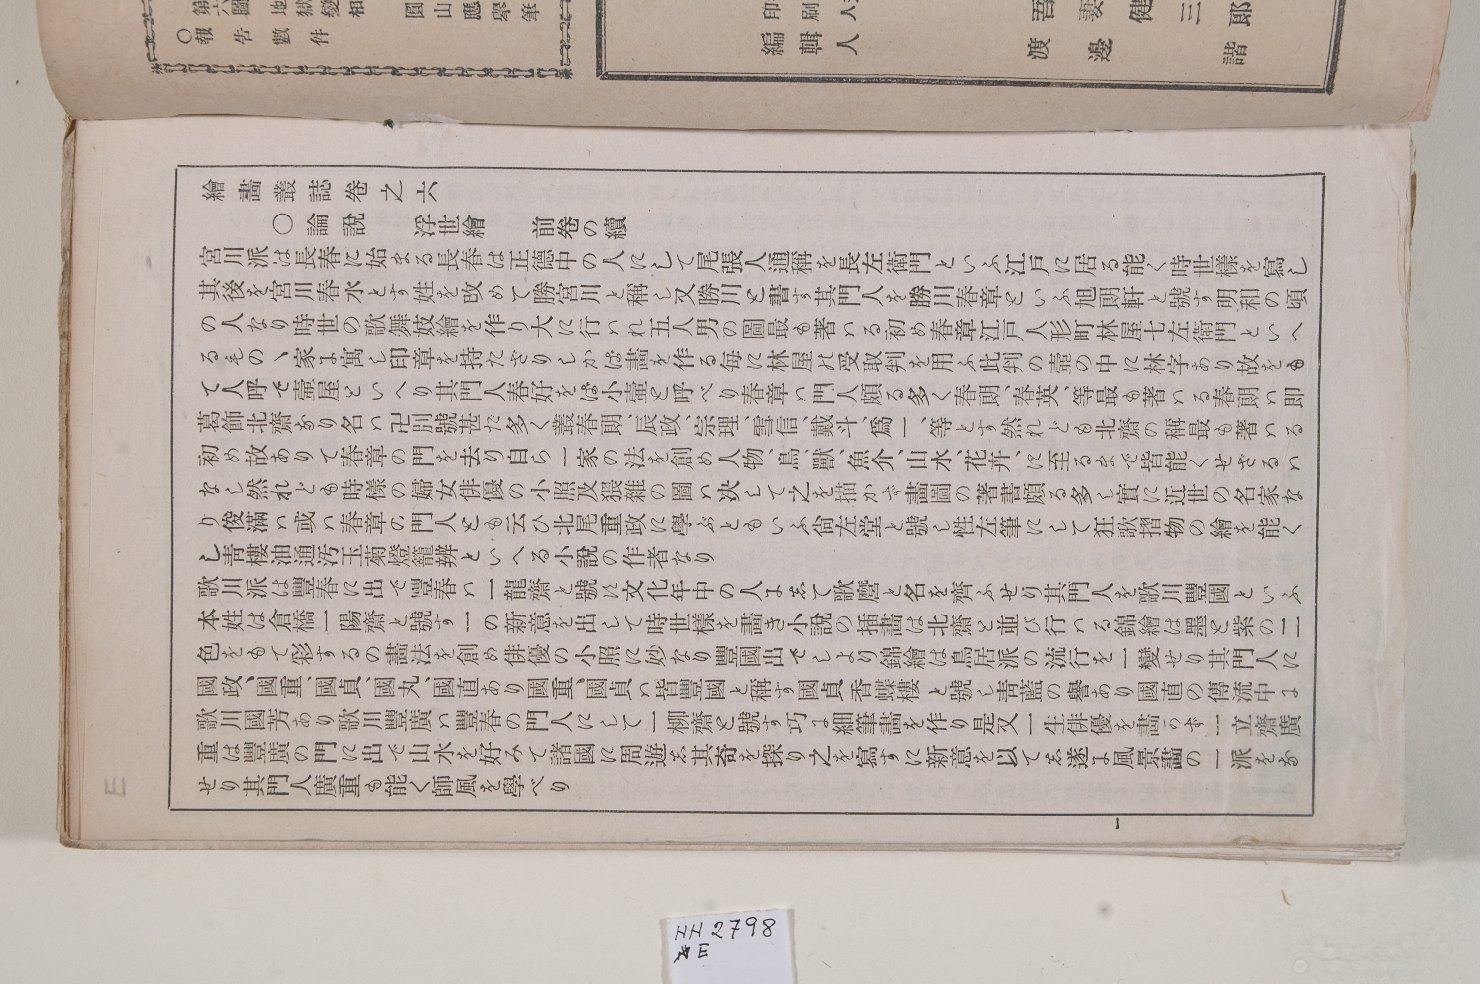 繪畫叢誌卷之六
〇論說　浮世繪　前卷の續
宮川派は長春に始まる長春は正德中の人にして尾張人通稱を長左衞門といふ江戸に居る能く時世樣を寫し
其後を宮川春水とす姓を改めて勝宮川と稱し又勝川と書す其門人を勝川春章といふ旭朗軒と號す明和の頃
の人なり時世の歌舞妓繪を作り大に行いれ五人男の圖最も著いる初め春章江戸人形町林屋七左衞門といへ
るものゝ家よ寓し印章を持たざりしかは畫を作る每に林屋の受取判を用ふ此判の壺の中に林字あり故をも
て人呼で壺屋といへり其門人春好をは小壺と呼べり春章い門人頗る多く春朗、春英、等最も著いる春朗い即
葛飾北齋なり名い卍別號甚だ多く叢春朗、辰政、宗理、雪信、戴斗、爲一、等とす然れども北齋の稱最も著いる
初め故ありて春章の門を去り自ら一家の法を創め人物、鳥、獸、魚介、山水、花卉、に至るまで皆能くせざるい
なし然れども時樣の婦女俳優の小照及猥雜の圖い决して之を描かず畫圖の著書頗る多し實に近世の名家な
り俊滿い或い春章の門人とも云ひ北尾重政に學ぶともいふ尙左堂と號し性左筆にして狂歌摺物の繪を能く
し靑樓油通汚玉菊燈籠辨といへる小說の作者なり
歌川派は豐春に出で豐春い一龍齋と號に文化年中の人よして歌麿と名を齊ふせり其門人を歌川豐國といふ
本姓は倉橋一陽齋と號す一の新意を出して時世樣を畫き小說の插畫は北齋と並び行いる錦繪は墨と紫の二
色をもて彩するの畫法を創め俳優の小照に妙なり豐國出でしより錦繪は鳥居派の流行を一變せり其門人に
國政、國重、國貞、國丸、國直あり國重、國貞い皆豐國と稱す國貞香蝶樓と號し靑藍の譽あり國直の傳流中よ
歌川國芳あり歌川豐廣い豐春の門人にして一柳齋と號す巧よ細筆畫を作り是又一生俳優を畫かず一立齋廣
重は豐廣の門に出で山水を好みて諸國に周遊し其奇を探り之を寫すに新意を以てし遂よ風景畫の一派をな
せり其門人廣重も能く師風を學べり
一
第六圖　地獄變相
園山應擧筆
〇報告　數件
印刷人
編輯人
渡邊
2798
E